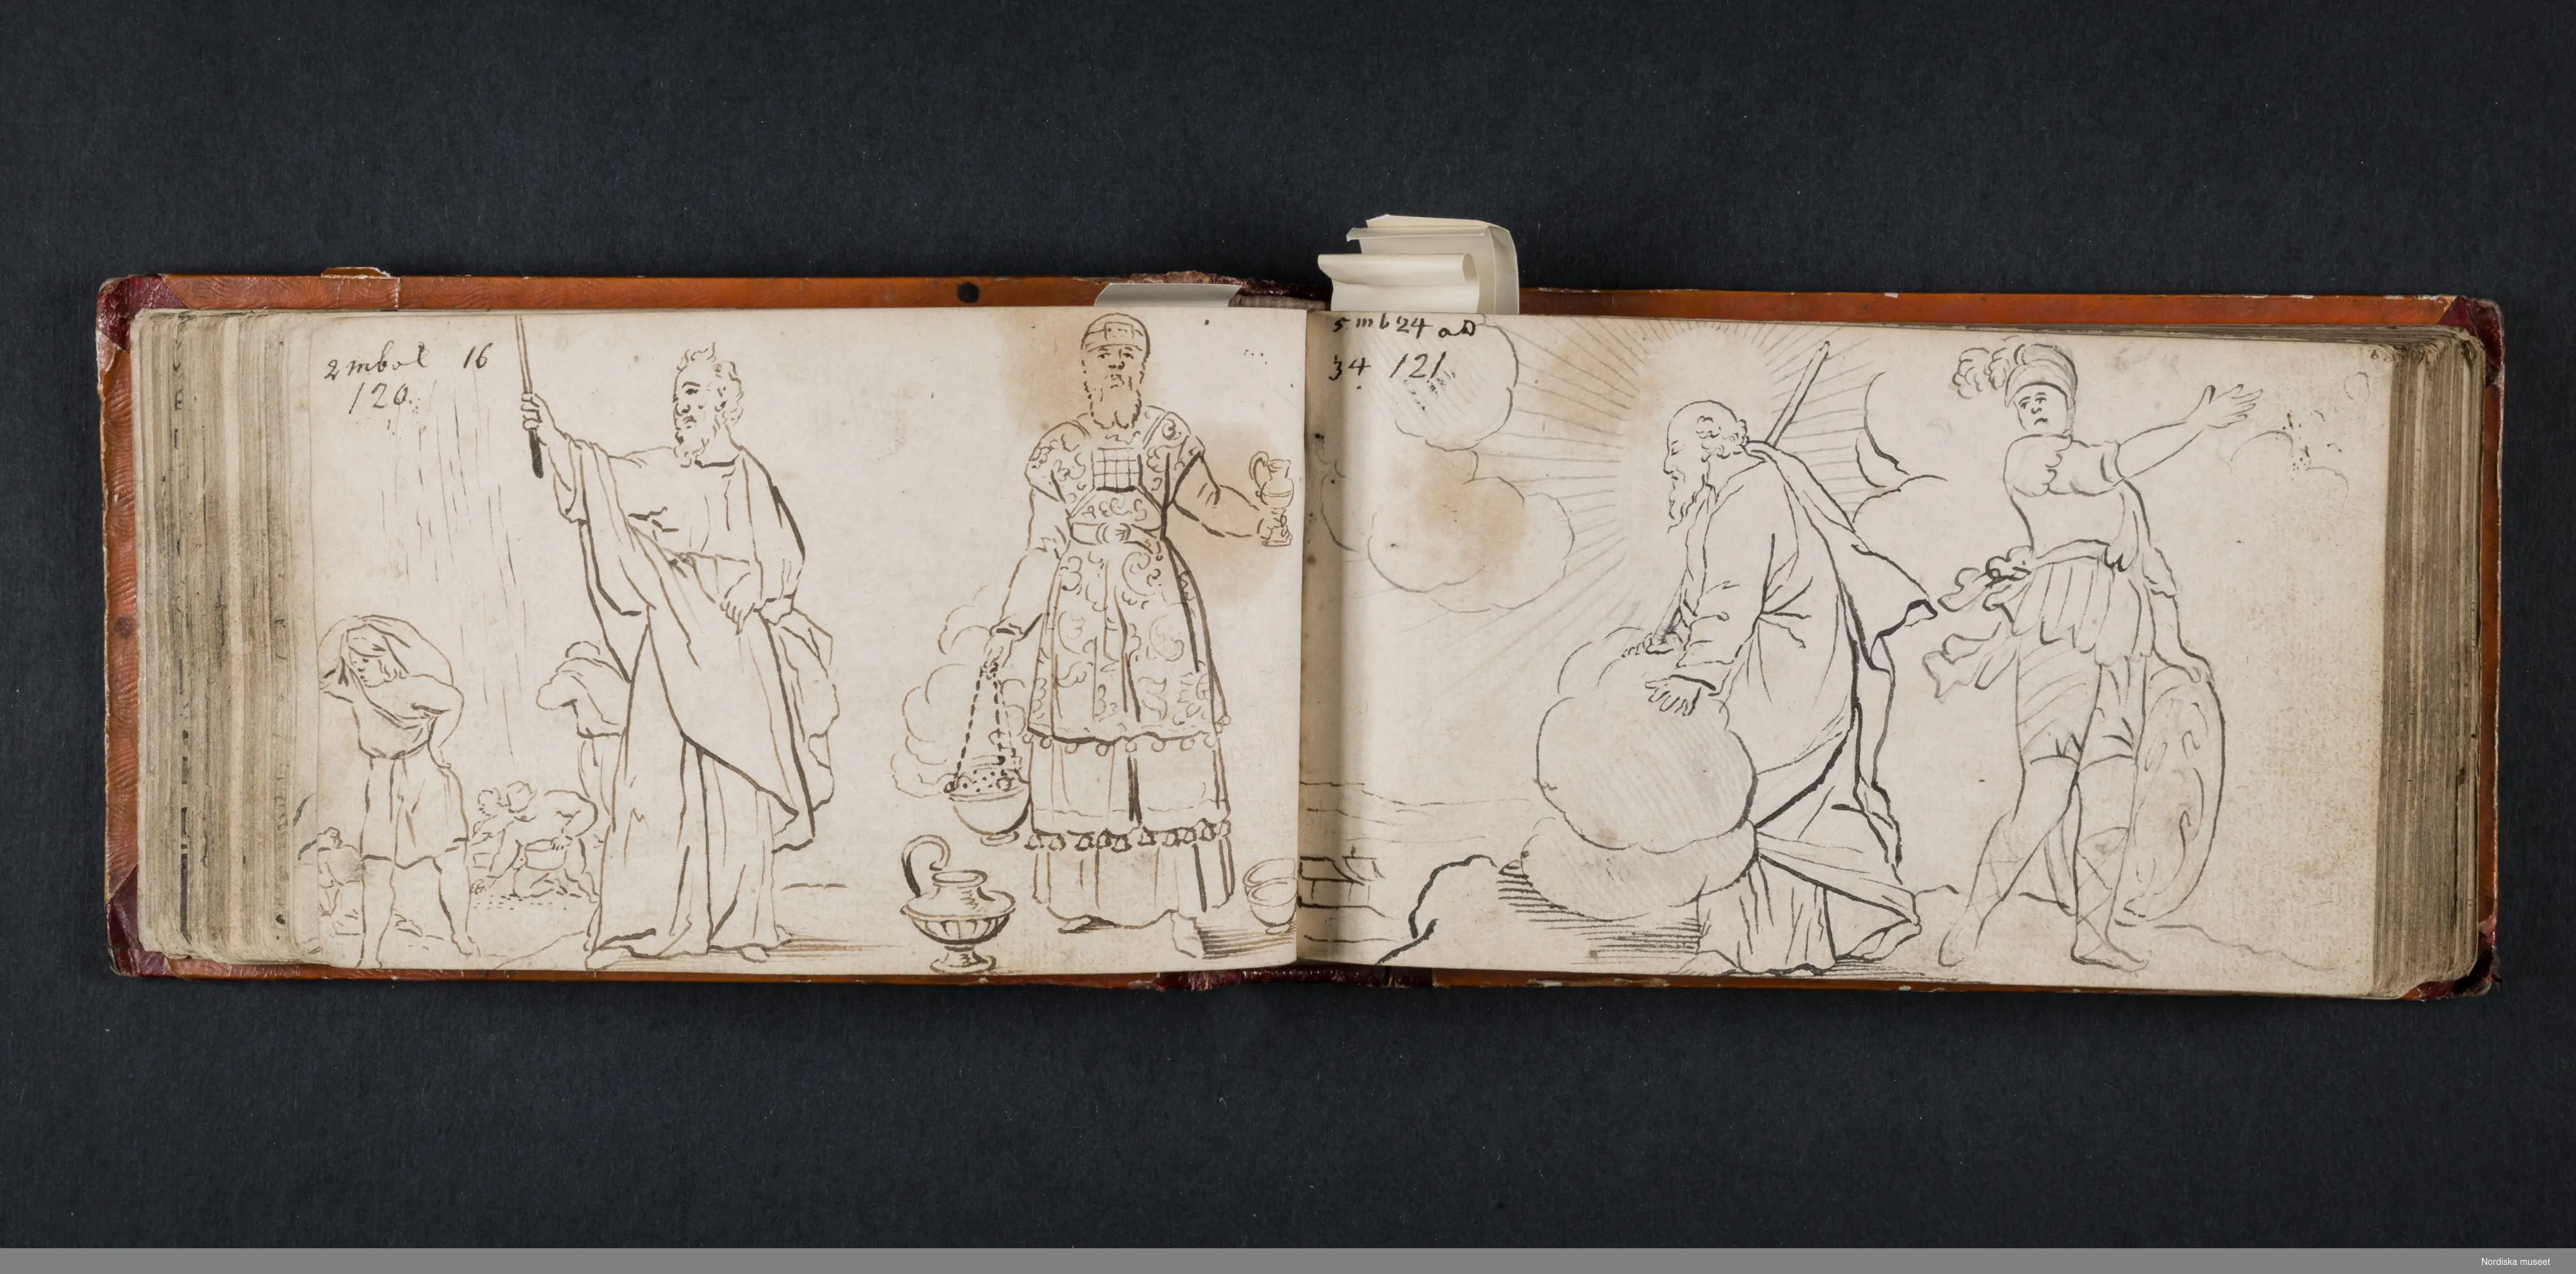 2 mbol 16
120.
5 mb 24 aD
34 121
Nordiska museet